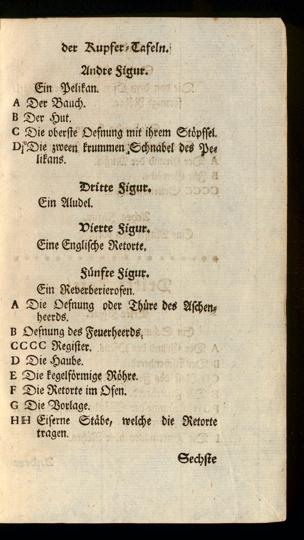 der Kupfer-Tafeln.
Andre Figur.
Ein Pelikan.
A Der Bauch.
B Der Hut.
C Die oberste Oefnung mit ihrem Stöpfsel.
D Die zween krummen Schnabel des Pe-
likans.
Dritte Figur.
Ein Aludel.
Vierte Figur.
Eine Englische Retorte.
Fünfte Figur.
Ein Reverberierofen.
A Die Oefnung oder Thüre des Aschen-
heerds.
B Oefnung des Feuerheerds.
CCCC Register.
D Die Haube.
E Die kegelförmige Röhre.
F Die Retorte im Ofen.
G Die Vorlage.
HH Eiserne Stäbe, welche die Retorte
tragen.
Sechste